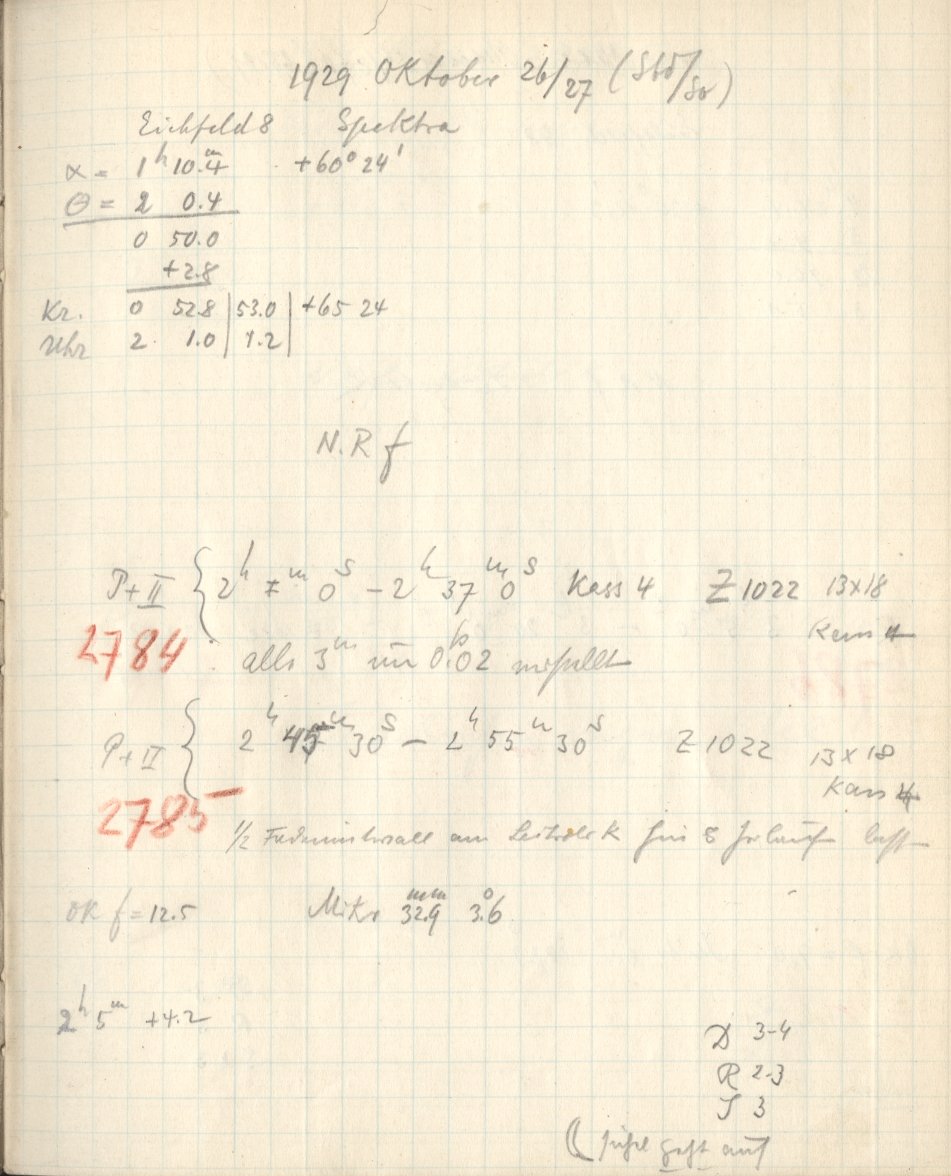 1929 Oktober 26/27 (Sbd/So)
Eichfeld 8 Spektra
α = 1h 10.m4 +60° 24'
Θ = 2 0.4
0 50.0
+2.8
Kr. 0 52.8 | 53.0 | +65 24
Uhr 2 1.0 | 1.2 |
N.R f
P+II { 2h 7m 0s – 2h 37m 0s Kass 4 Z 1022 13x18
Kass 4
2784 alle 3m um 0.02
P+II { 2h 45m 30s – 2h 55m 30s Z 1022 13x18
Kass 4
2785
1/2 Fadenintervall am
OK f = 12.5 Mikr 32.9mm 3.°6
2h 5m +4.2
D 3-4
R 2-3
J 3
( geht auf